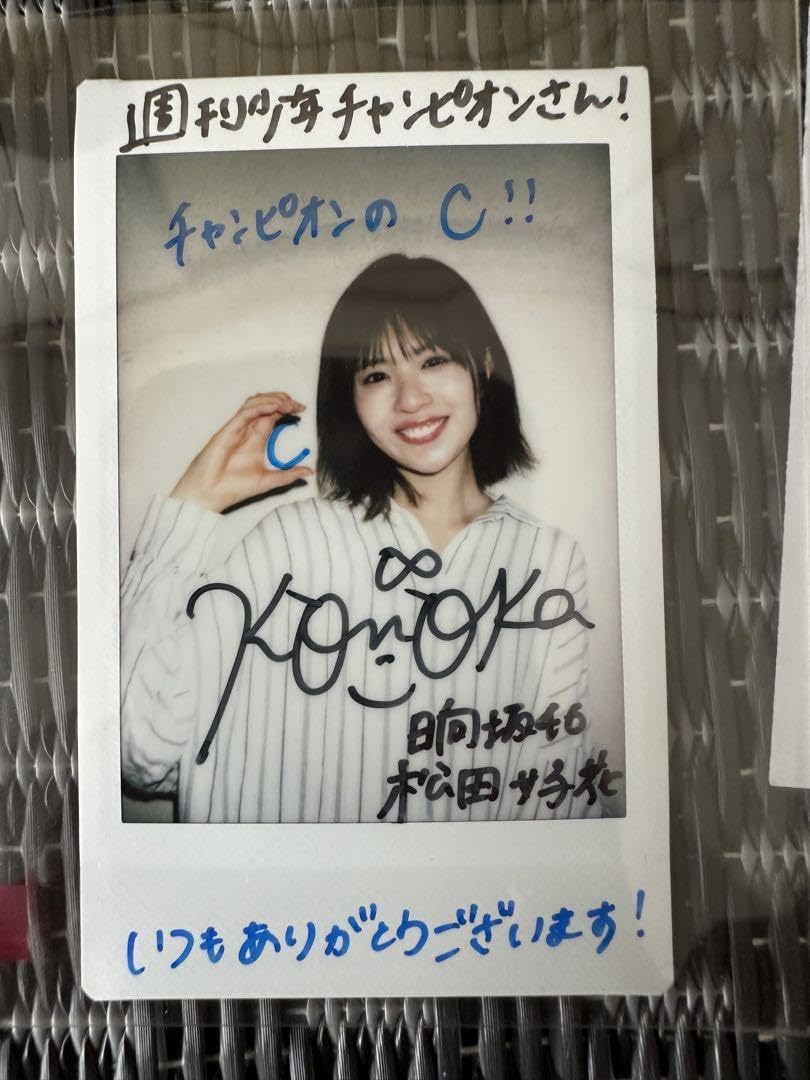 週刊少年チャンピオンさん!
チャンピオンの C!!
C
Konoka
日向坂46
松田好花
いつもありがとうございます!